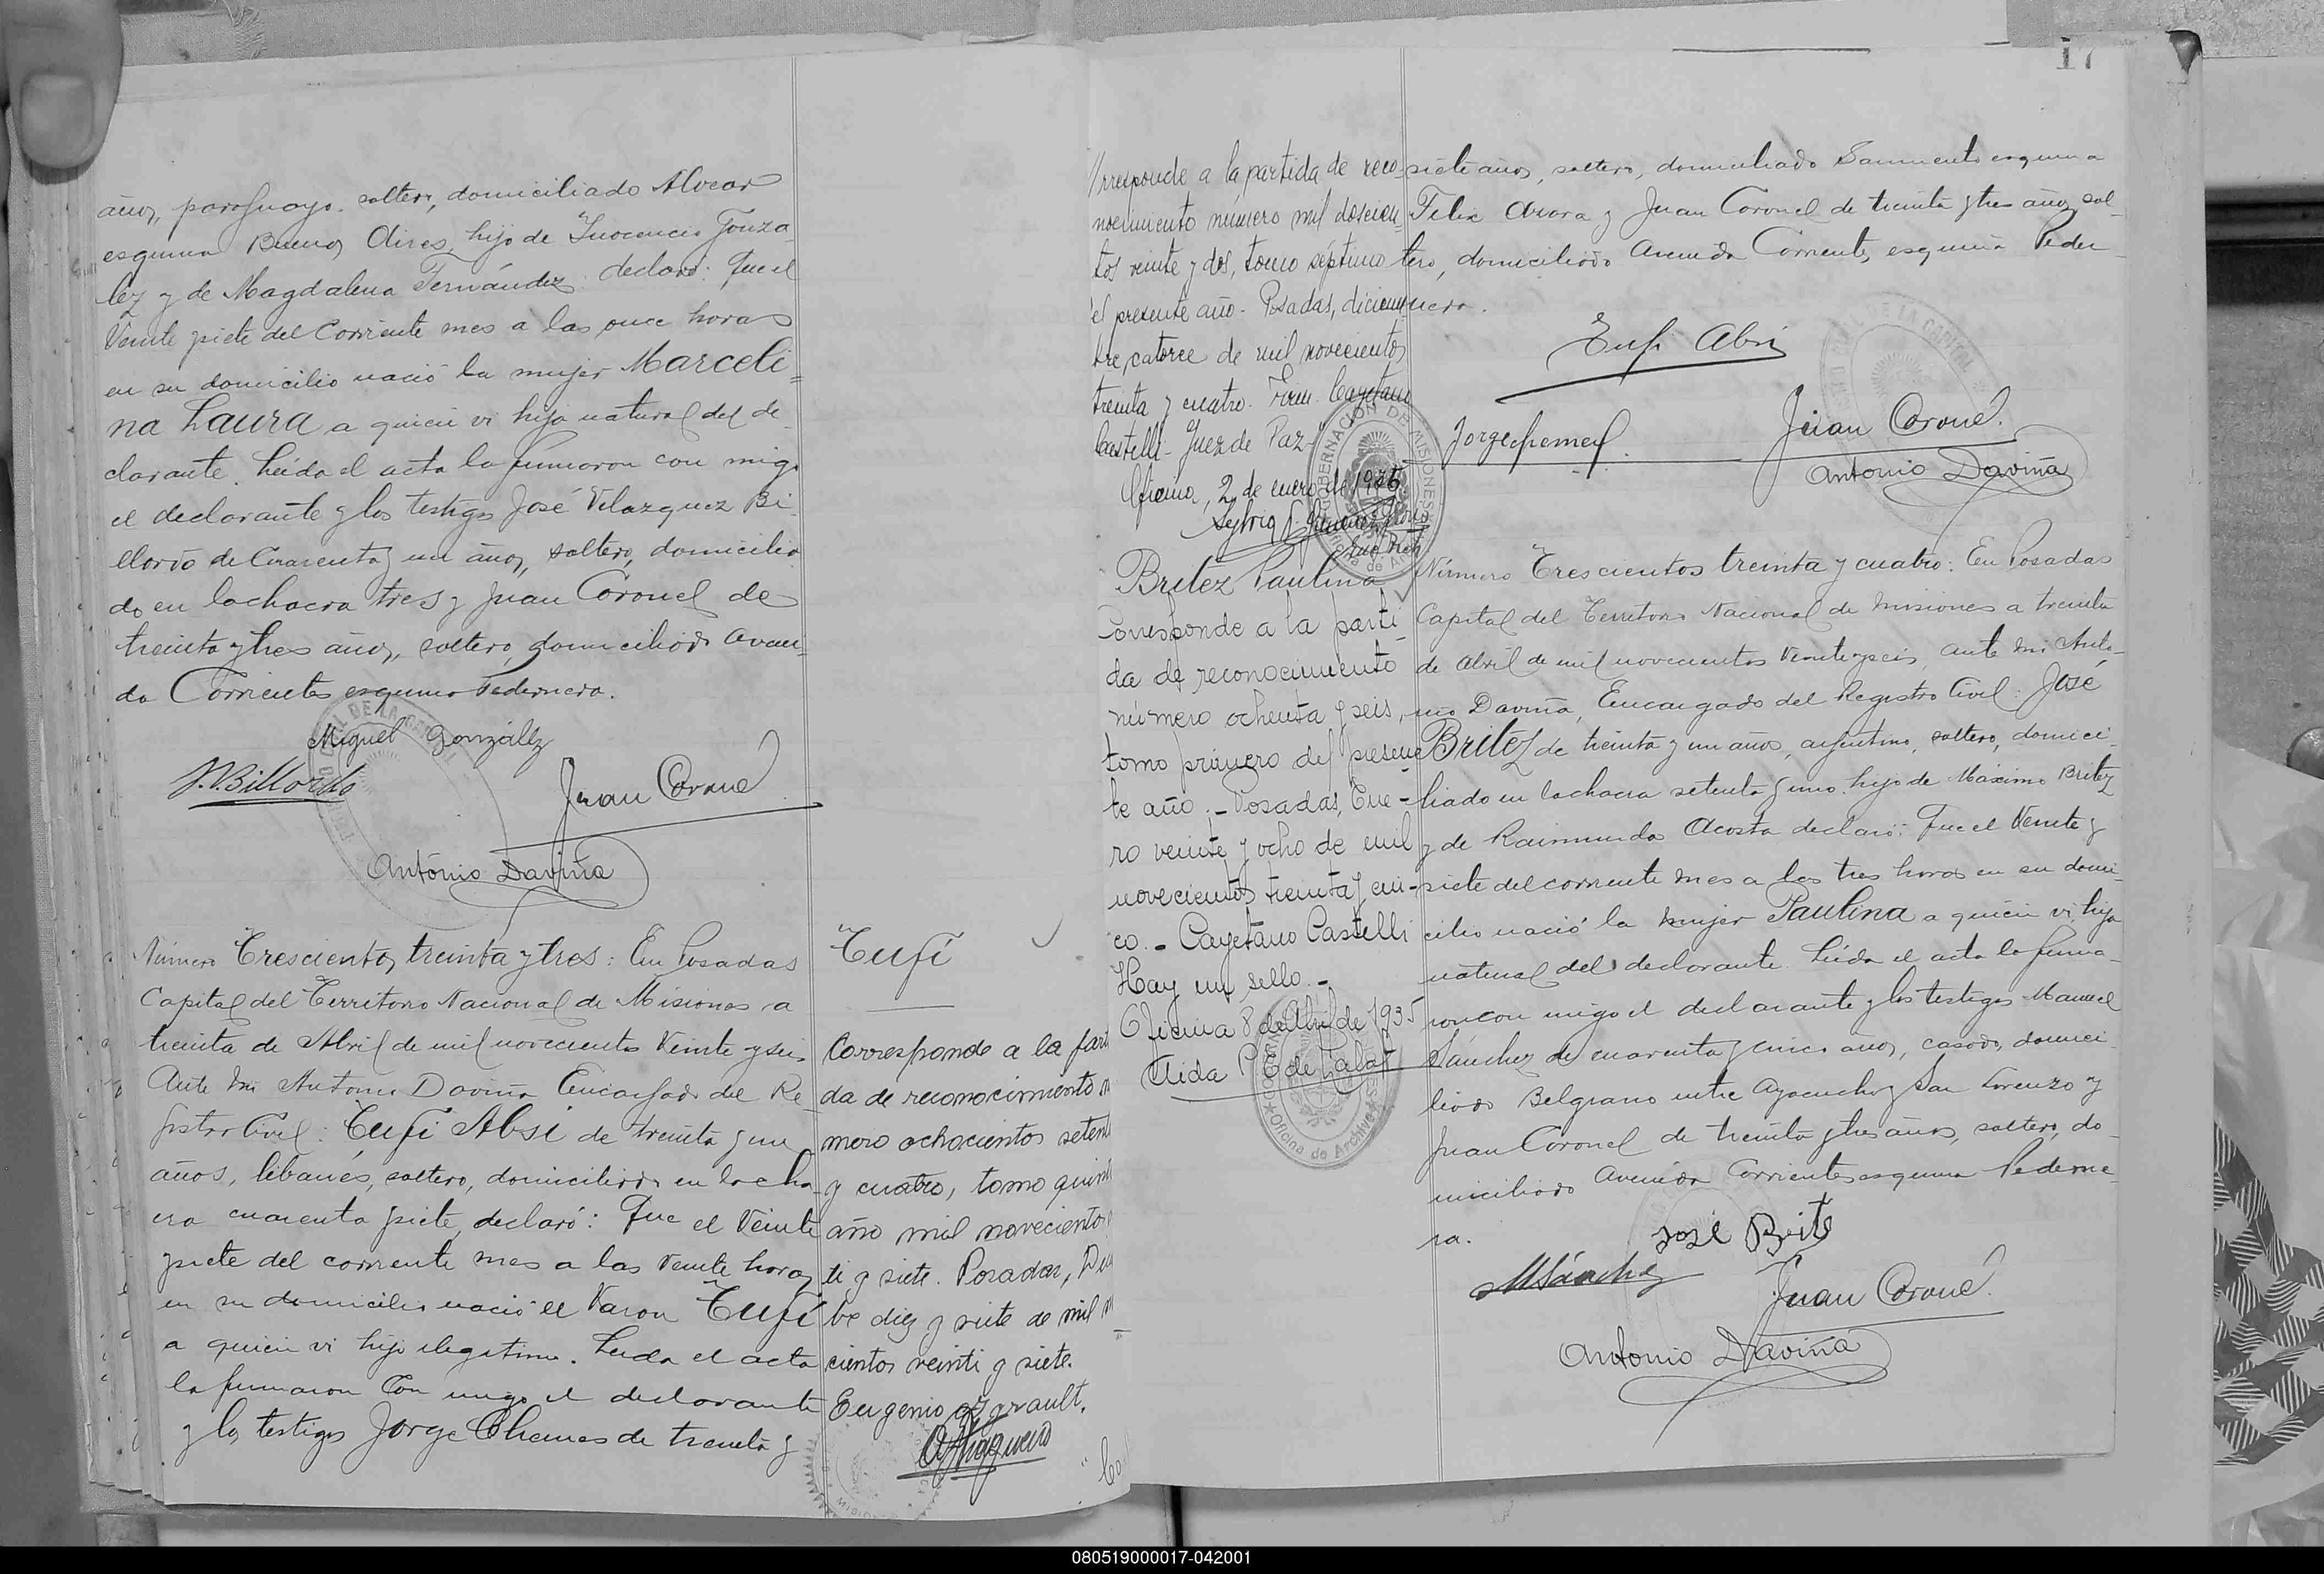 años, paraguayo. soltero, domiciliado Alvear
esquina Buenos Aires, hijo de Inocencio Gonza
lez y de Magdalena Fernández declaró: Que el
Veinte y siete del Corriente mes a las once horas
en su domicilio nació la mujer Marceli=
na Laura a quien vi hija natural del de
clarante. Leída el acta la firmaron con migo
el declarante y los testigos José Velazquez Bi
llordo de Cuarenta y un años, soltero, domicilia
do en la chacra tres y Juan Coronel de
treinta y tres años, soltero, domiciliado Aveni=
da Corrientes esquina Pedernera.
Miguel González
J.V.Billordo
Juan Coronel
Antonio Daviña
Número Trescientos treinta y tres: En Posadas
Capital del Territorio Nacional de Misiones a
treinta de Abril de mil novecientos Veinte y seis
Ante Mi Antonio Daviña Encargado del Re-
gistro Civil: Tufi Absi de treinta y un
años, libanés, soltero, domiciliado en la cha-
cra cuarenta y siete, declaró: Que el Veinte
y siete del corriente mes a las Veinte horas
en su domicilio nació el Varon Tufí
a quien vi hijo ilegitimo. Leida el acta
la firmaron Con migo el declarante
y los testigos Jorge Chemes de treinta y
Tufí
Corresponde a la parti
da de reconocimiento n
mero ochocientos seten
y cuatro, tomo quin
año mil novecientos
ti y siete. Posadas,
bre diez y siete de mil n
cientos veinti y siete.
Eugenio
17
rresponde a la partida de reco-
nocimiento número mil doscien-
tos veinte y dos, tomo séptimo
el presente año. Posadas, diciem
bre catorce de mil novecientos
treinta y cuatro. Firm. Cayetano
Castelli - Juez de Paz
Oficina, 2 de enero de
GOBERNACION DE MISIONES
Britez Paulina
Corresponde a la parti
da de reconocimiento
número ochenta y seis,
tomo primero del presen
te año. - Posadas, Ene-
ro veinte y ocho de mil
novecientos treinta y cin-
co. - Cayetano Castelli
Hay un sello. -
Oficina 8 de Abril de 1935
Aida P. de
Oficina de Archivo
siete años, soltero, domiciliado Sarmiento esquina
Felix Azara y Juan Coronel de treinta y tres años, sol-
tero, domiciliado Avenida Corrientes, esquina Peder-
nera.
Tufi Absi
Jorge Chemes
Juan Coronel
Antonio Daviña
Número Trescientos treinta y cuatro: En Posadas
Capital del Territorio Nacional de Misiones a treinta
de Abril de mil novecientos Veinte y seis, ante mi Anto-
nio Daviña, Encargado del Registro Civil: José
Britez de treinta y un años, argentino, soltero, domici-
liado en la chacra setenta y uno, hijo de Máximo Britez
y de Raimunda Acosta declaró: Que el Veinte y
siete del corriente mes a las tres horas en su domi-
cilio nació la mujer Paulina a quien vi hija
natural del declarante. Leída el acta la firma-
ron con migo el declarante y los testigos Manuel
Sánchez de cuarenta y cinco años, casado, domici-
liado Belgrano entre Ayacucho y San Lorenzo y
Juan Coronel de treinta y tres años, soltero, do-
miciliado Avenida Corrientes esquina Pederne
ra.
José Brite
MSánchez
Juan Coronel
Antonio Daviña
080519000017-042001